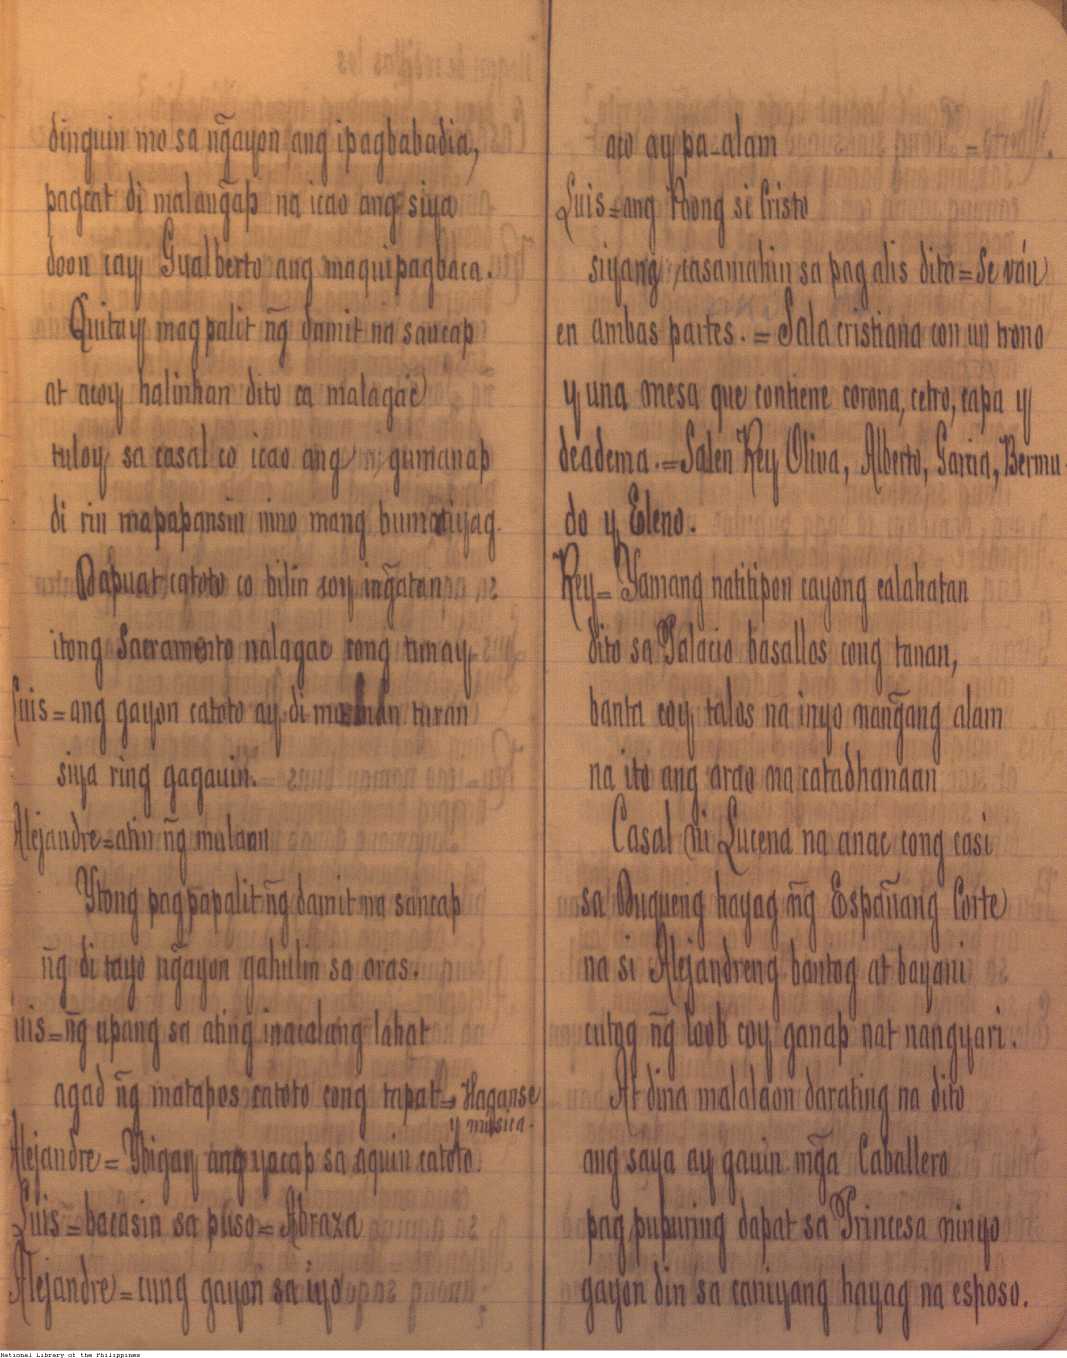 dinguin mo sa ng̃ayon ang ipagbabadia,
pagcat di malaug̃ap na icao ang siya
doon cay Gualberto ang maquipagbaca.
Quitay magpalit ñg damit na saucap
at acoy halinhan dito ca malagac
tuloy sa casal co icao ang gumanap
di rin mapapansin mno mang humatiyag.
Dapuat catoto co bilin coy ing̃atan
itong Sacramento nalagac cong tunay
Luis = ang gayon catoto ay di turan
siya ring gagauin.
Alejandre = atin ñg malaon
Ytong pagpapalit ñg damit na sancap
ñg di tayo ng̃ayon gahulin sa oras.
uis = ñg upang sa ating inacalang lahat
agad ñg matapos catoto cong tapat = Haganse
y musica.
Alejandre = Ybigay ang yacap sa aquin catoto.
Luis = bacasin sa puso = Abraza
Alejandre = cung gayon sa iyo
aco ay pa-alam =
Luis = ang Poong si Cristo
siyang casamahin sa pag alis dito = Se ván
en ambas partes. = Sala cristiana con un trono
y una mesa que contiene corona, cetro, capa y
deadema. = Salen Rey Oliva, Alberto, Garcia, Bermu
do y Eleno.
Rey = Yamang natitipon cayong calahatan
dito sa Palacio basallos cong tanan,
banta coy talos na inyo nang̃ang alam
na ito ang arao na catadhanaan
Casal ni Lucena na anac cong casi
sa Duqueng hayag ñg Españang Corte
na si Alejandreng bantog at bayani
cutog ñg loob coy ganap nat nangyari.
At dina malalaon darating na dito
ang saya ay gauin mg̃a Caballero
pag pupuring dapat sa Princesa ninyo
gayon din sa caniyang hayag na esposo.
National Library of the Philippines